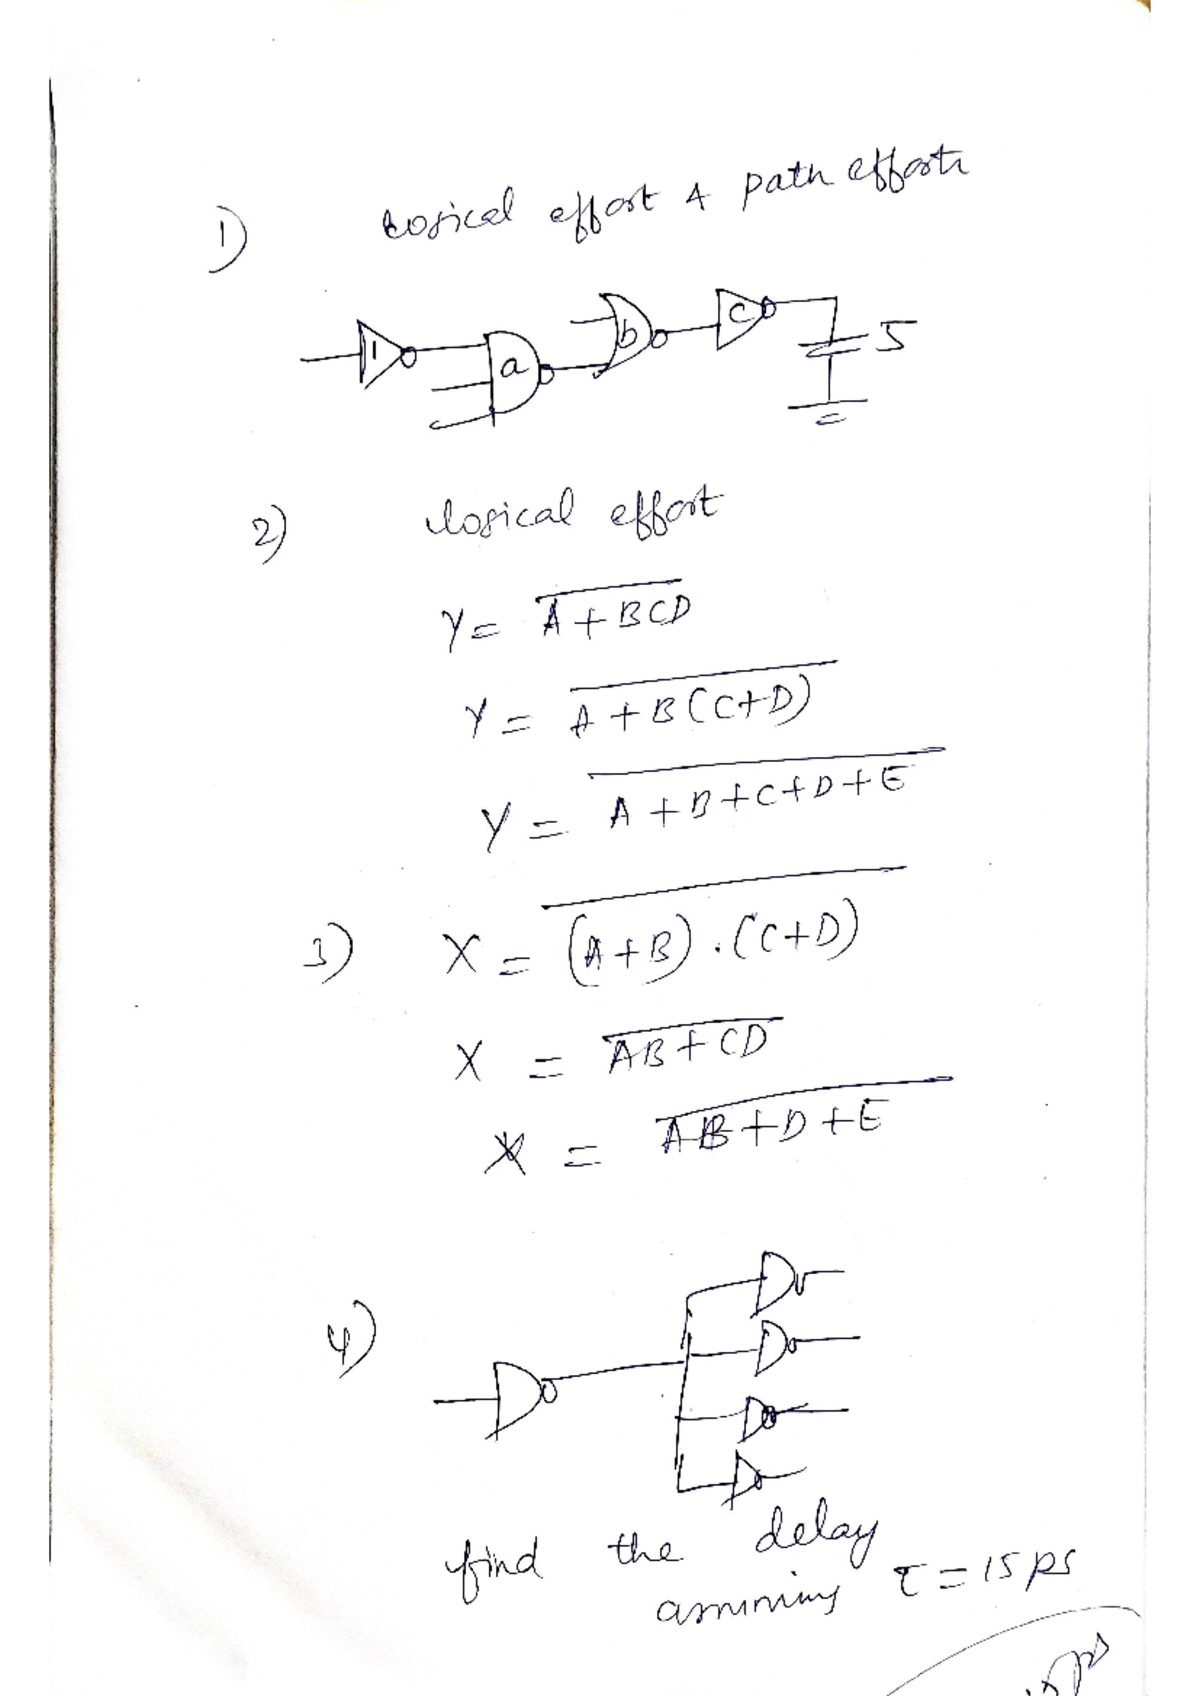 1) Logical effort & path efforts
1 a b c 5
2) logical effort
Y = \overline{A + BCD}
Y = \overline{A + B(C+D)}
Y = \overline{A + B + C + D + E}
3) X = \overline{(A+B).(C+D)}
X = \overline{AB + CD}
X = \overline{AB + D + E}
4)
find the delay
assuming τ = 15 ps